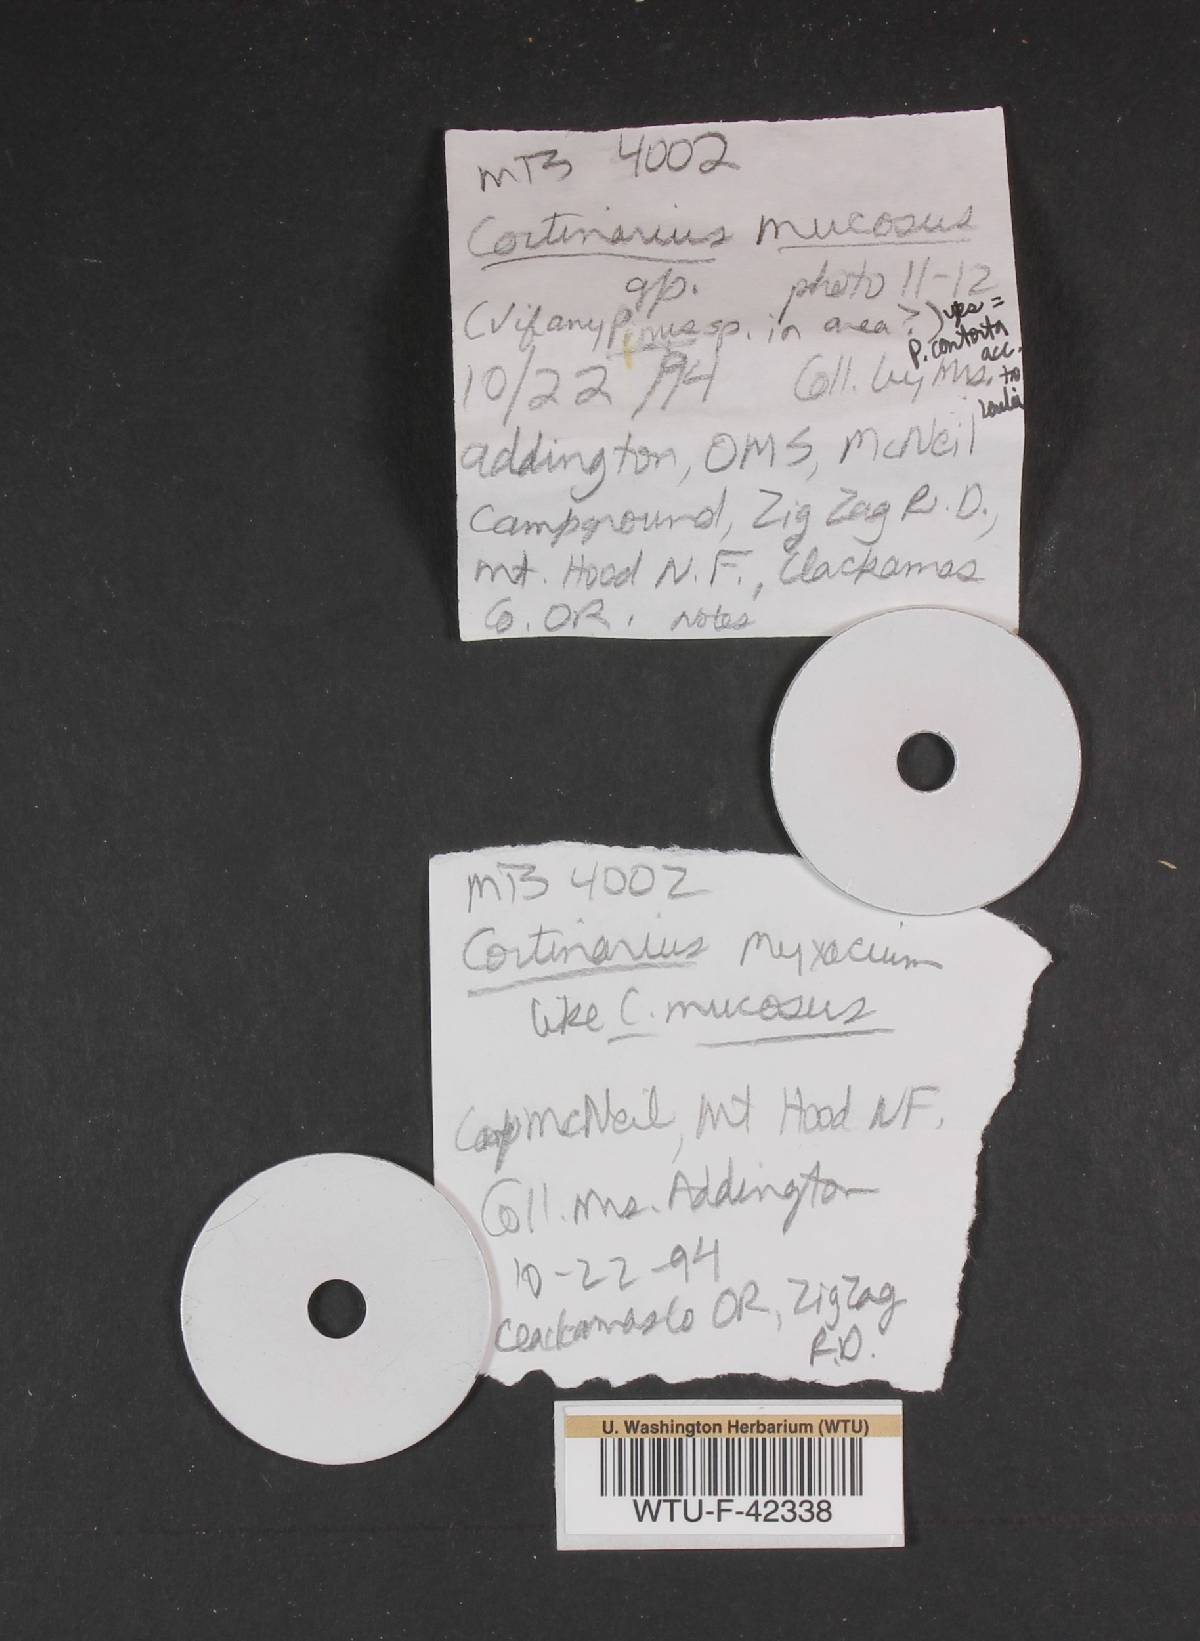 MTB 4002
Cortinarius mucosus
gp. photo 11-12
(√ if any Pinus sp. in area?) yes =
P. contorta
acc.
to
10/22/94 Coll. by Mrs.
Addington, OMS, McNeil
Campground, Zig Zag R.D.,
Mt. Hood N.F., Clackamas
Co. OR. notes
MTB 4002
Cortinarius Myxacium
like C. mucosus
Camp McNeil, Mt Hood NF.
Coll. Mrs. Addington
10-22-94
Clackamas Co OR, Zig Zag
R.D.
U. Washington Herbarium (WTU)
WTU-F-42338